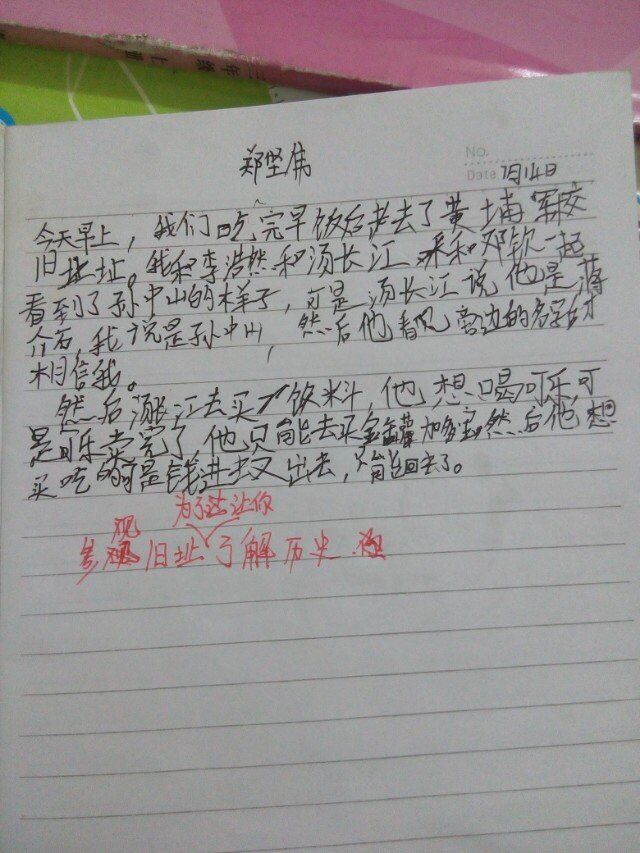 郑坚伟
No.
Date 7月14日
今天早上，我们吃完早饭后去了黄埔军校
旧址。我和李浩然和汤长江和邓钦一起
看到了孙中山的样子，可是汤长江说他是蒋
介石，我说是孙中山，然后他看见旁边的名字后才
相信我。
然后江去买了饮料，他想喝可乐，可
是可乐卖完了，他只能去买金罐加多宝，然后他想
买吃的可是钱进去又出去，只能回去了。
为了让你
参观旧址了解历史